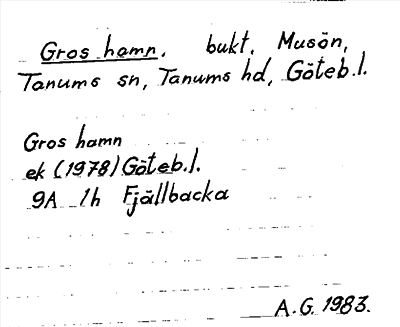 Gros hamn. bukt. Musön,
Tanums sn, Tanums hd, Göteb.l.
Gros hamn
ek (1978) Göteb.l.
9A 1h Fjällbacka
A.G. 1983.